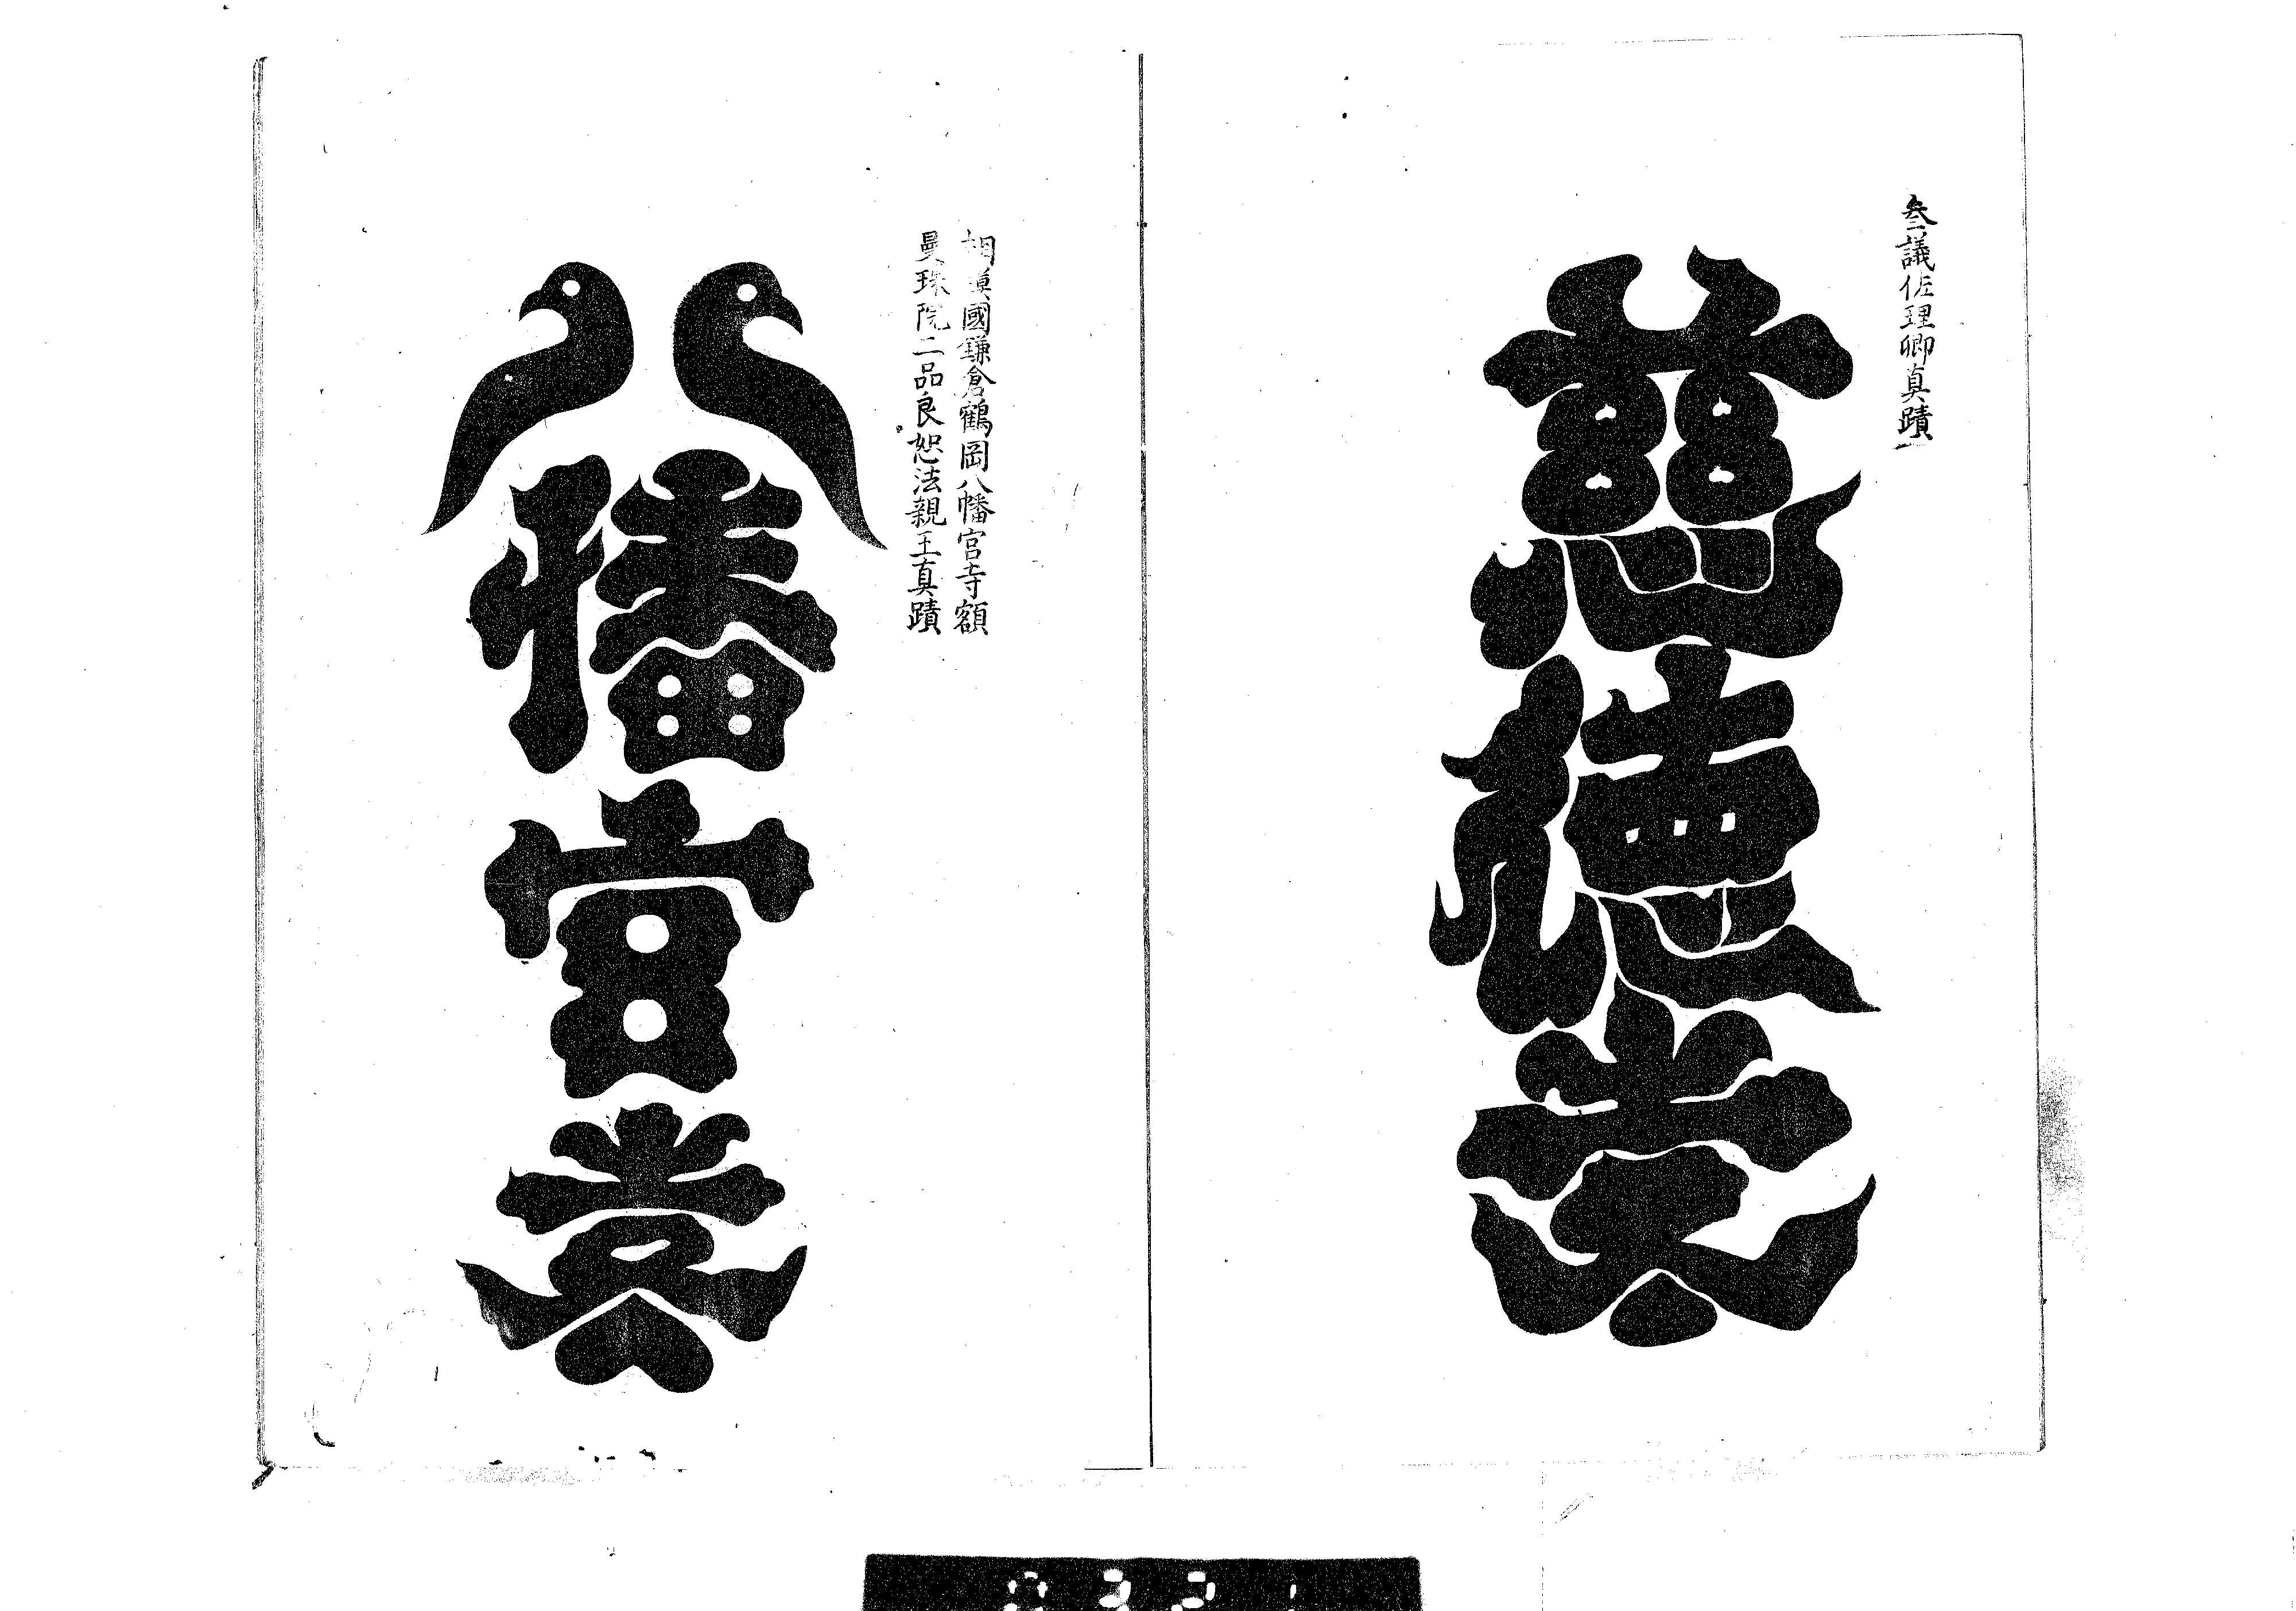 叅議佐理卿真蹟
慈徳寺
相模國鎌倉鶴岡八幡宮寺額
曼珠院二品良恕法親王真蹟
八幡宮寺